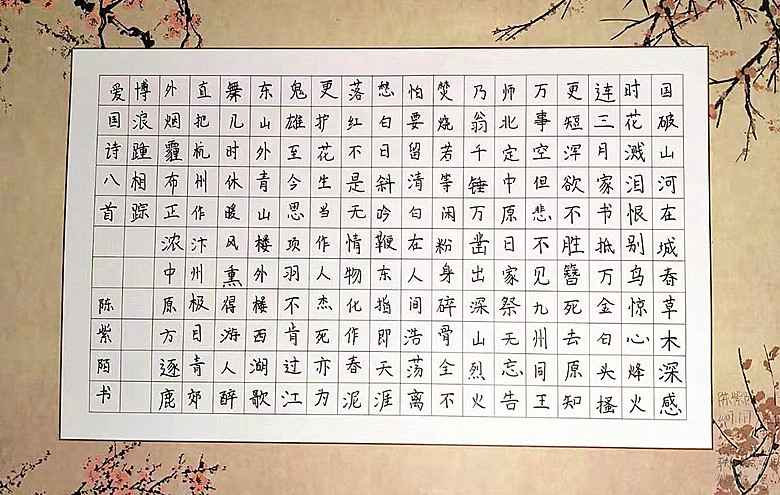 国破山河在城春草木深感
时花溅泪恨别鸟惊心烽火
连三月家书抵万金白头搔
更短浑欲不胜簪死去原知
万事空但悲不见九州同王
师北定中原日家祭无忘告
乃翁千锤万凿出深山烈火
焚烧若等闲粉身碎骨全不
怕要留清白在人间浩荡离
愁白日斜吟鞭东指即天涯
落红不是无情物化作春泥
更护花生当作人杰死亦为
鬼雄至今思项羽不肯过江
东山外青山楼外楼西湖歌
舞几时休暖风熏得游人醉
直把杭州作汴州极目青郊
外烟霾布正浓中原方逐鹿
博浪踵相踪
爱国诗八首 陈紫陌书